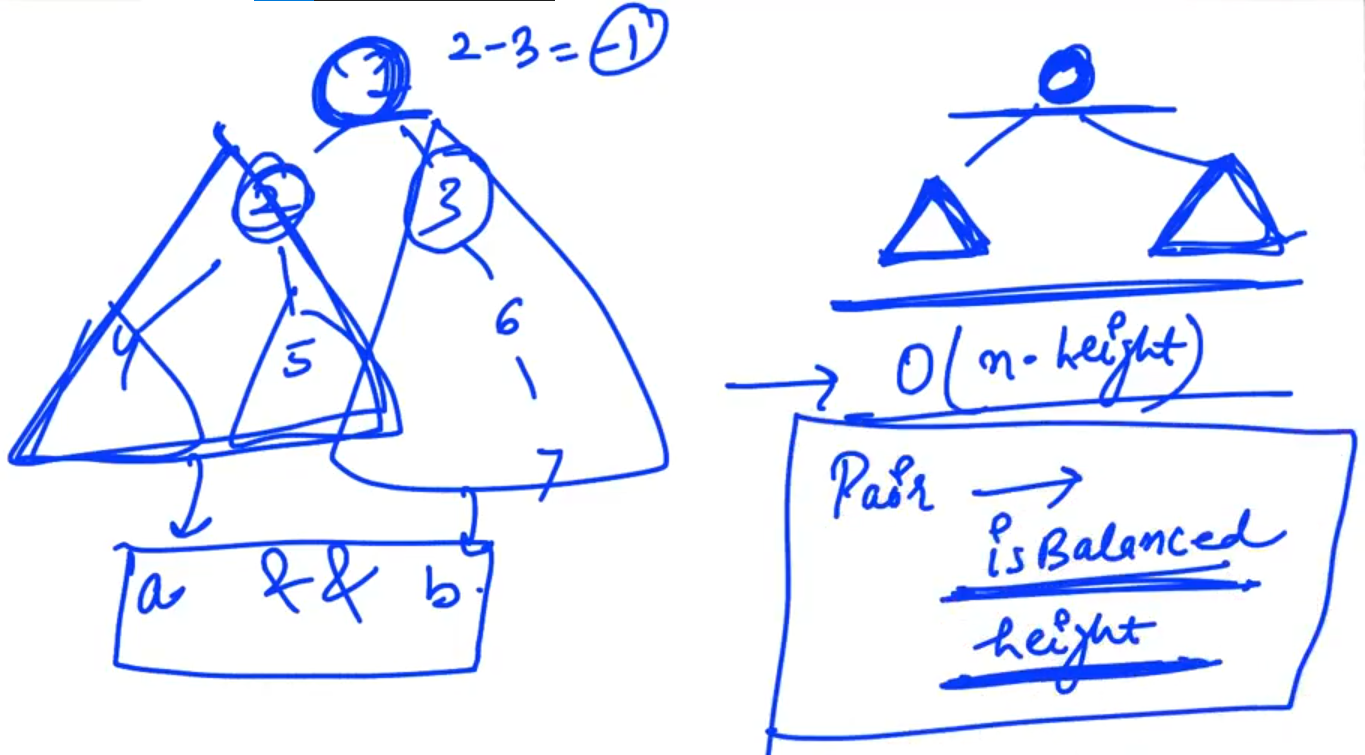 2-3 = -1
1
2
3
4
5
6
7
a && b
O(n. height)
Pair →
isBalanced
height